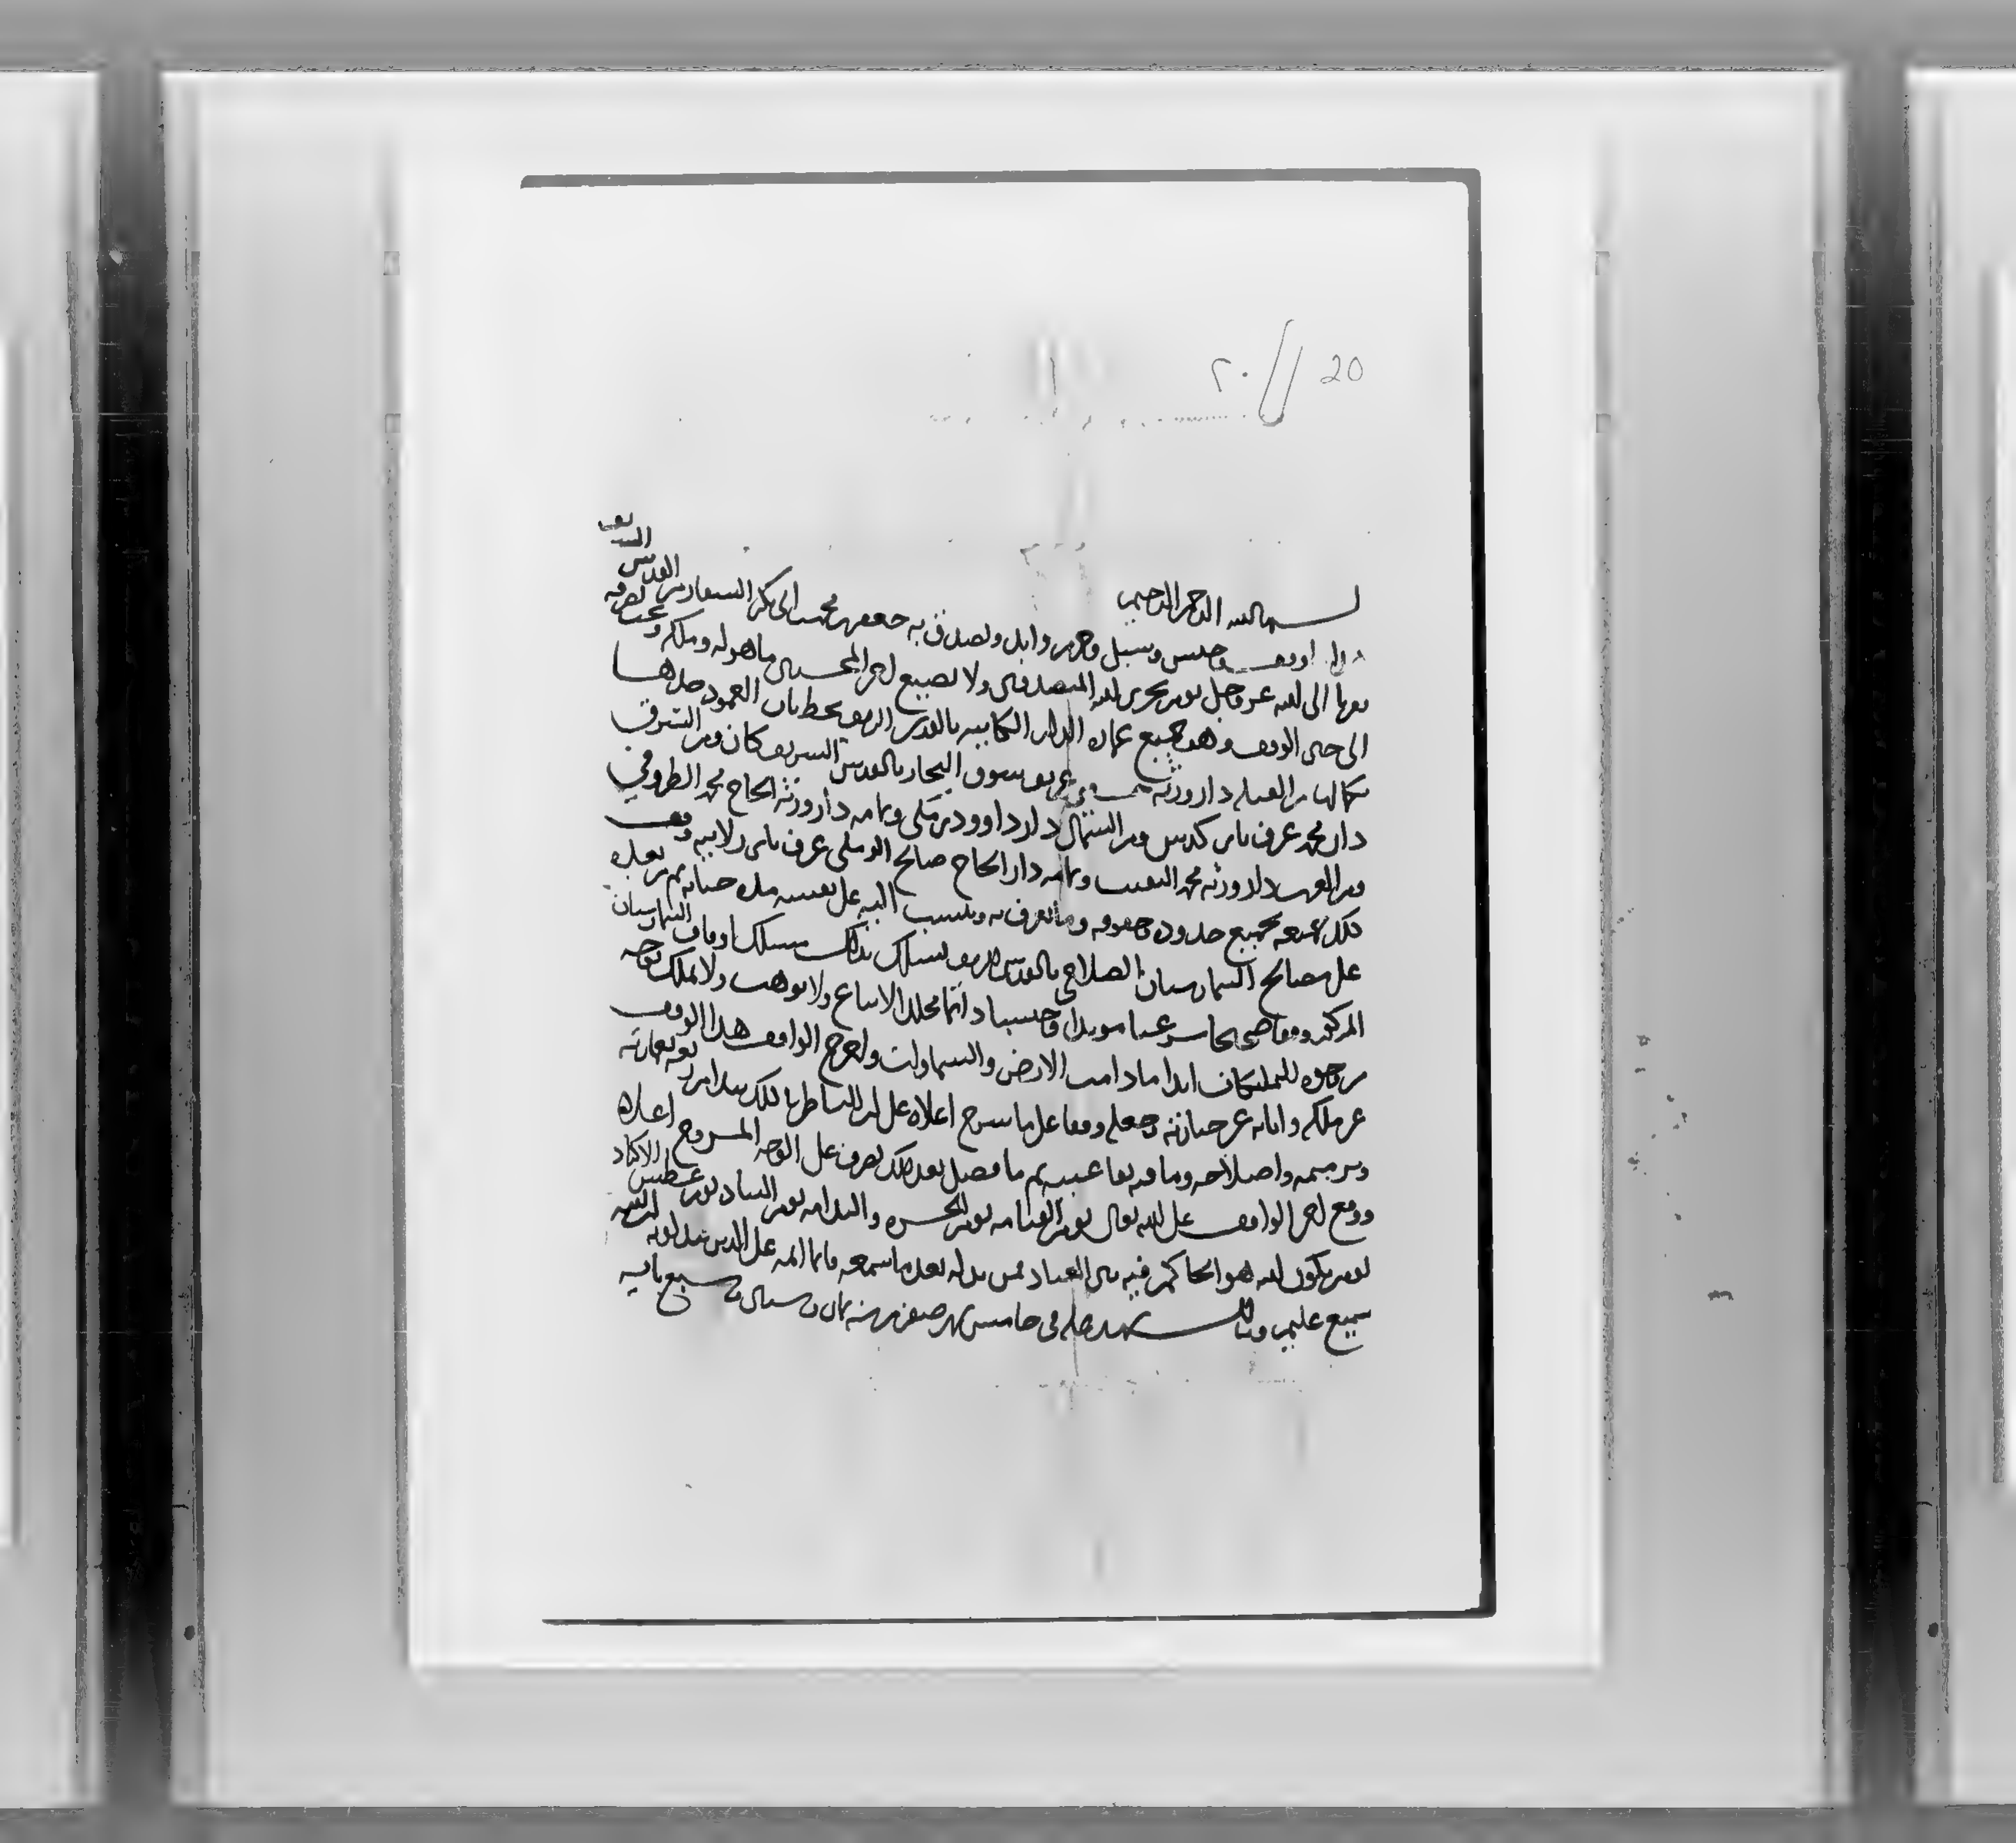 20 // ٢٠
بسم الله الرحمن الرحيم
هذا ما وقف وحبس وسبل وحرم وابد وتصدق به جعفر بن محمد بن ابي بكر من القدس الشريف
تقربا الى الله عز وجل يوم يجزي الله المتصدقين ولا يضيع اجر المحسنين ما هو له وملكه وتحت تصرفه
الى حين الوقف وهو جميع عمارة الدار الكاينة بالقدس الشريف بخط باب العمود حدها
بكمالها من القبلة دار ورثة بسوق الفخار بالقدس الشريف كان ومن الشرق
دار محمد عرف بابن كدیس ومن الشمال دار داوود وتمامه دار ورثة الحاج محمد
ومن الغرب دار ورثة محمد النقيب وتمامه دار الحاج صالح الرملي عرف بابن زلابيه وقف
ذلك جميعه بجميع حدوده وحقوقه وما يعرف به وينسب اليه على نفسه مدة حياته ثم من بعده
على مصالح البيمارستان الصلاحي بالقدس الشريف يسلك بذلك مسلك اوقاف البيمارستان
المذكور وقفا صحيحا شرعيا مؤبدا وحبسا دائما مخلدا لا يباع ولا يوهب ولا يملك بوجه
من وجوه التمليكات ابدا ما دامت الارض والسماوات واخرج الواقف هذا الوقف
عن ملكه وابانه عن حيازته وجعله وقفا على ما شرح اعلاه على ان الناظر بذلك يبدا من ريعه بعمارته
وترميمه واصلاحه وما فيه بقا عينه ثم ما فضل بعد ذلك يصرف على الوجه المشروح اعلاه
ووقع اجر الواقف على الله تعالى يوم القيامة يوم الحسرة والندامة يوم التناد يوم عطش الاكباد
يوم يكون الله هو الحاكم فيه بين العباد فمن بدله بعد ما سمعه فانما اثمه على الذين يبدلونه ان الله
سميع عليم وبذلك شهد عليه في خامس شهر صفر من سنة ثمان وسبع مايه